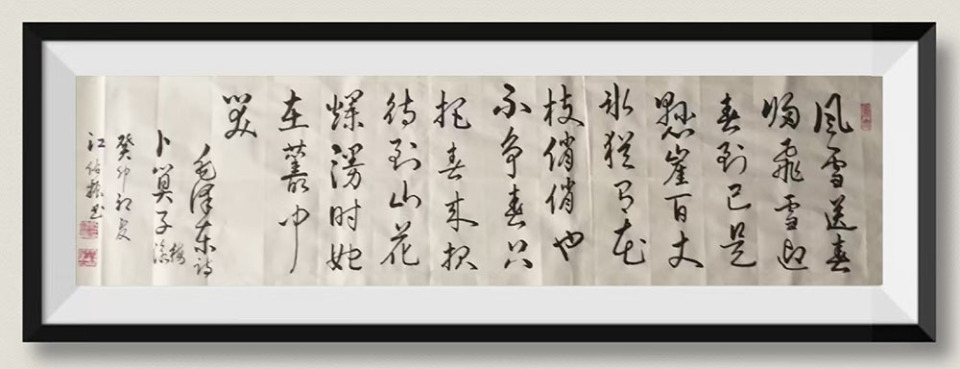 風雪送春
归飛雪迎
春到已是
懸崖百丈
冰猶有花
枝俏俏也
不争春只
把春来报
待到山花
爛漫时她
在叢中
笑
毛泽东诗
卜算子咏梅
癸卯初夏
江
书